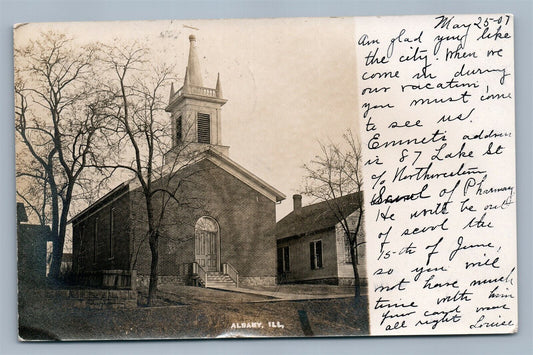 May 25-07
Am glad you like
the city. When we
come in during
our vacation,
you must come
to see us.
Emmets address
is 87 Lake St
c/o Northwestern
School of Pharmacy
He will be out
of scool the
15-th of June,
so you will
not have much
time with him
Your card was
all right Louise
ALBANY, ILL.